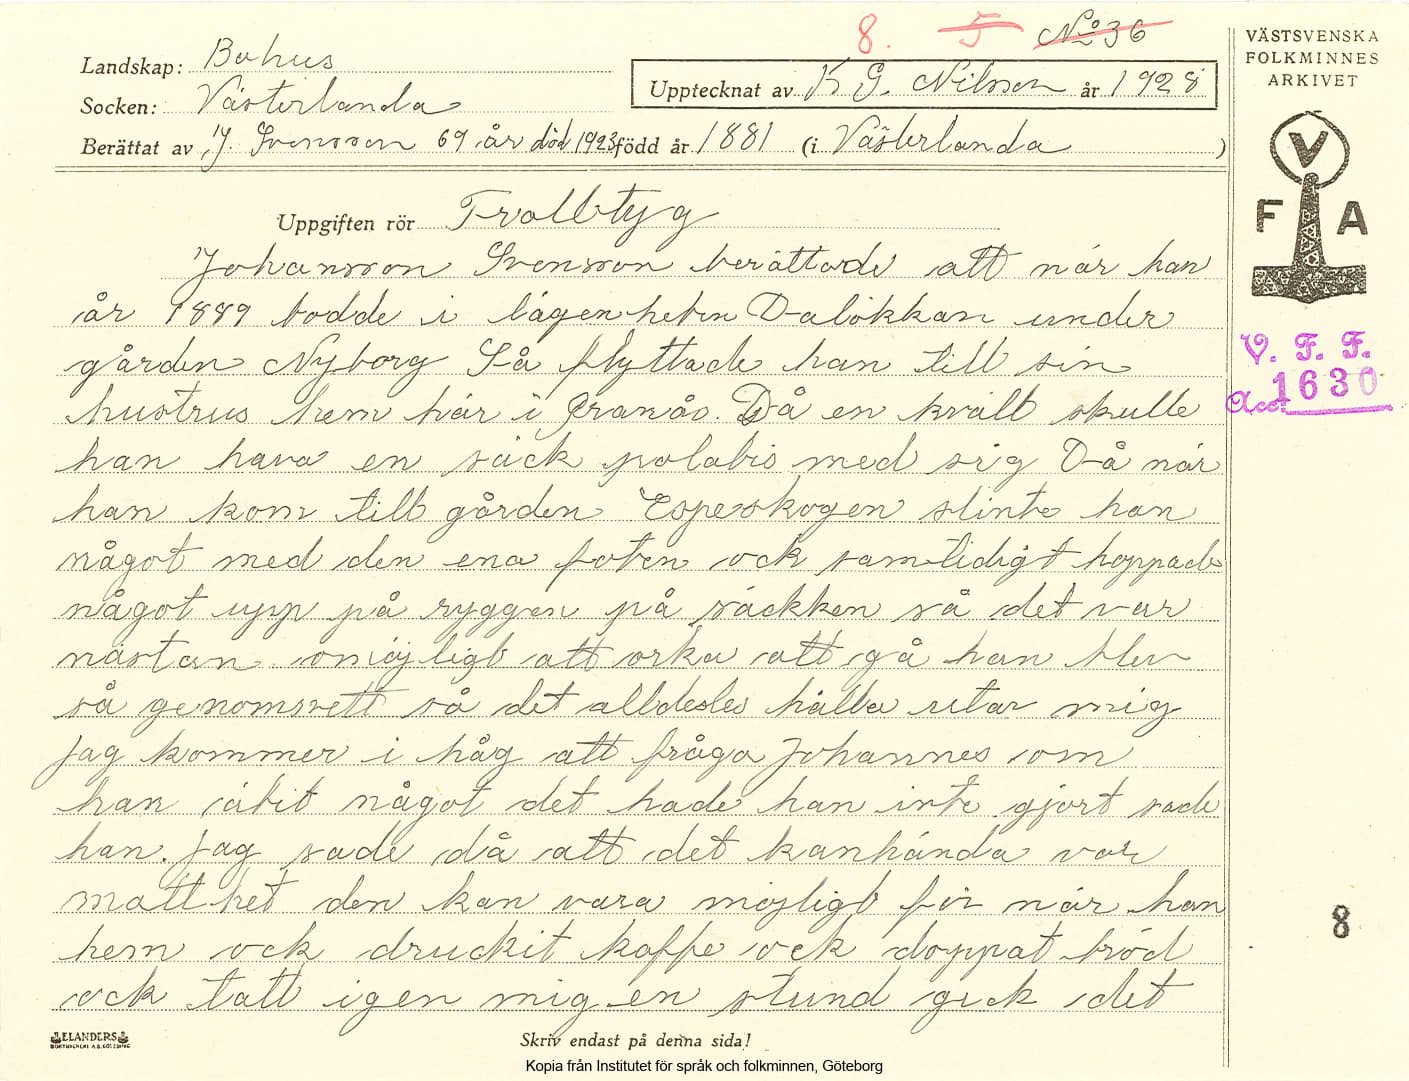 8. 5 No 36
Landskap: Bohus
Socken: Västerlanda
Upptecknat av K G. Nilsson år 1928
Berättat av J. Svensson 69 år död 1923 född år 1881 (i Västerlanda )
VÄSTSVENSKA
FOLKMINNES
ARKIVET
V
F A
V. F. F.
Acc. 1630
Uppgiften rör Trolltyg
Johansson Svensson berättade att när han
år 1889 bodde i lägenheten Dalökkan under
gården Nyborg Så flyttade han till sin
hustrus hem här i Granås. Då en kväll skulle
han hava en säck polabis med sig Då när
han kom till gården Espeskogen slinte han
något med den ena foten ock samtidigt hoppade
något upp på ryggen på säckken så det var
nästan omöjligt att orka att gå han blev
så genomsvett så det alldeles hälla utav mig
Jag kommer i håg att fråga Johannes om
han ätit något det hade han inte gjort sade
han. Jag sade då att det kanhända var
matthet den kan vara möjligt för när han
hem ock druckit kaffe ock doppat bröd
ock tatt igen mig en stund gick det
8
ELANDERS
BOKTRYCKERI A.B. GÖTEBORG
Skriv endast på denna sida!
Kopia från Institutet för språk och folkminnen, Göteborg